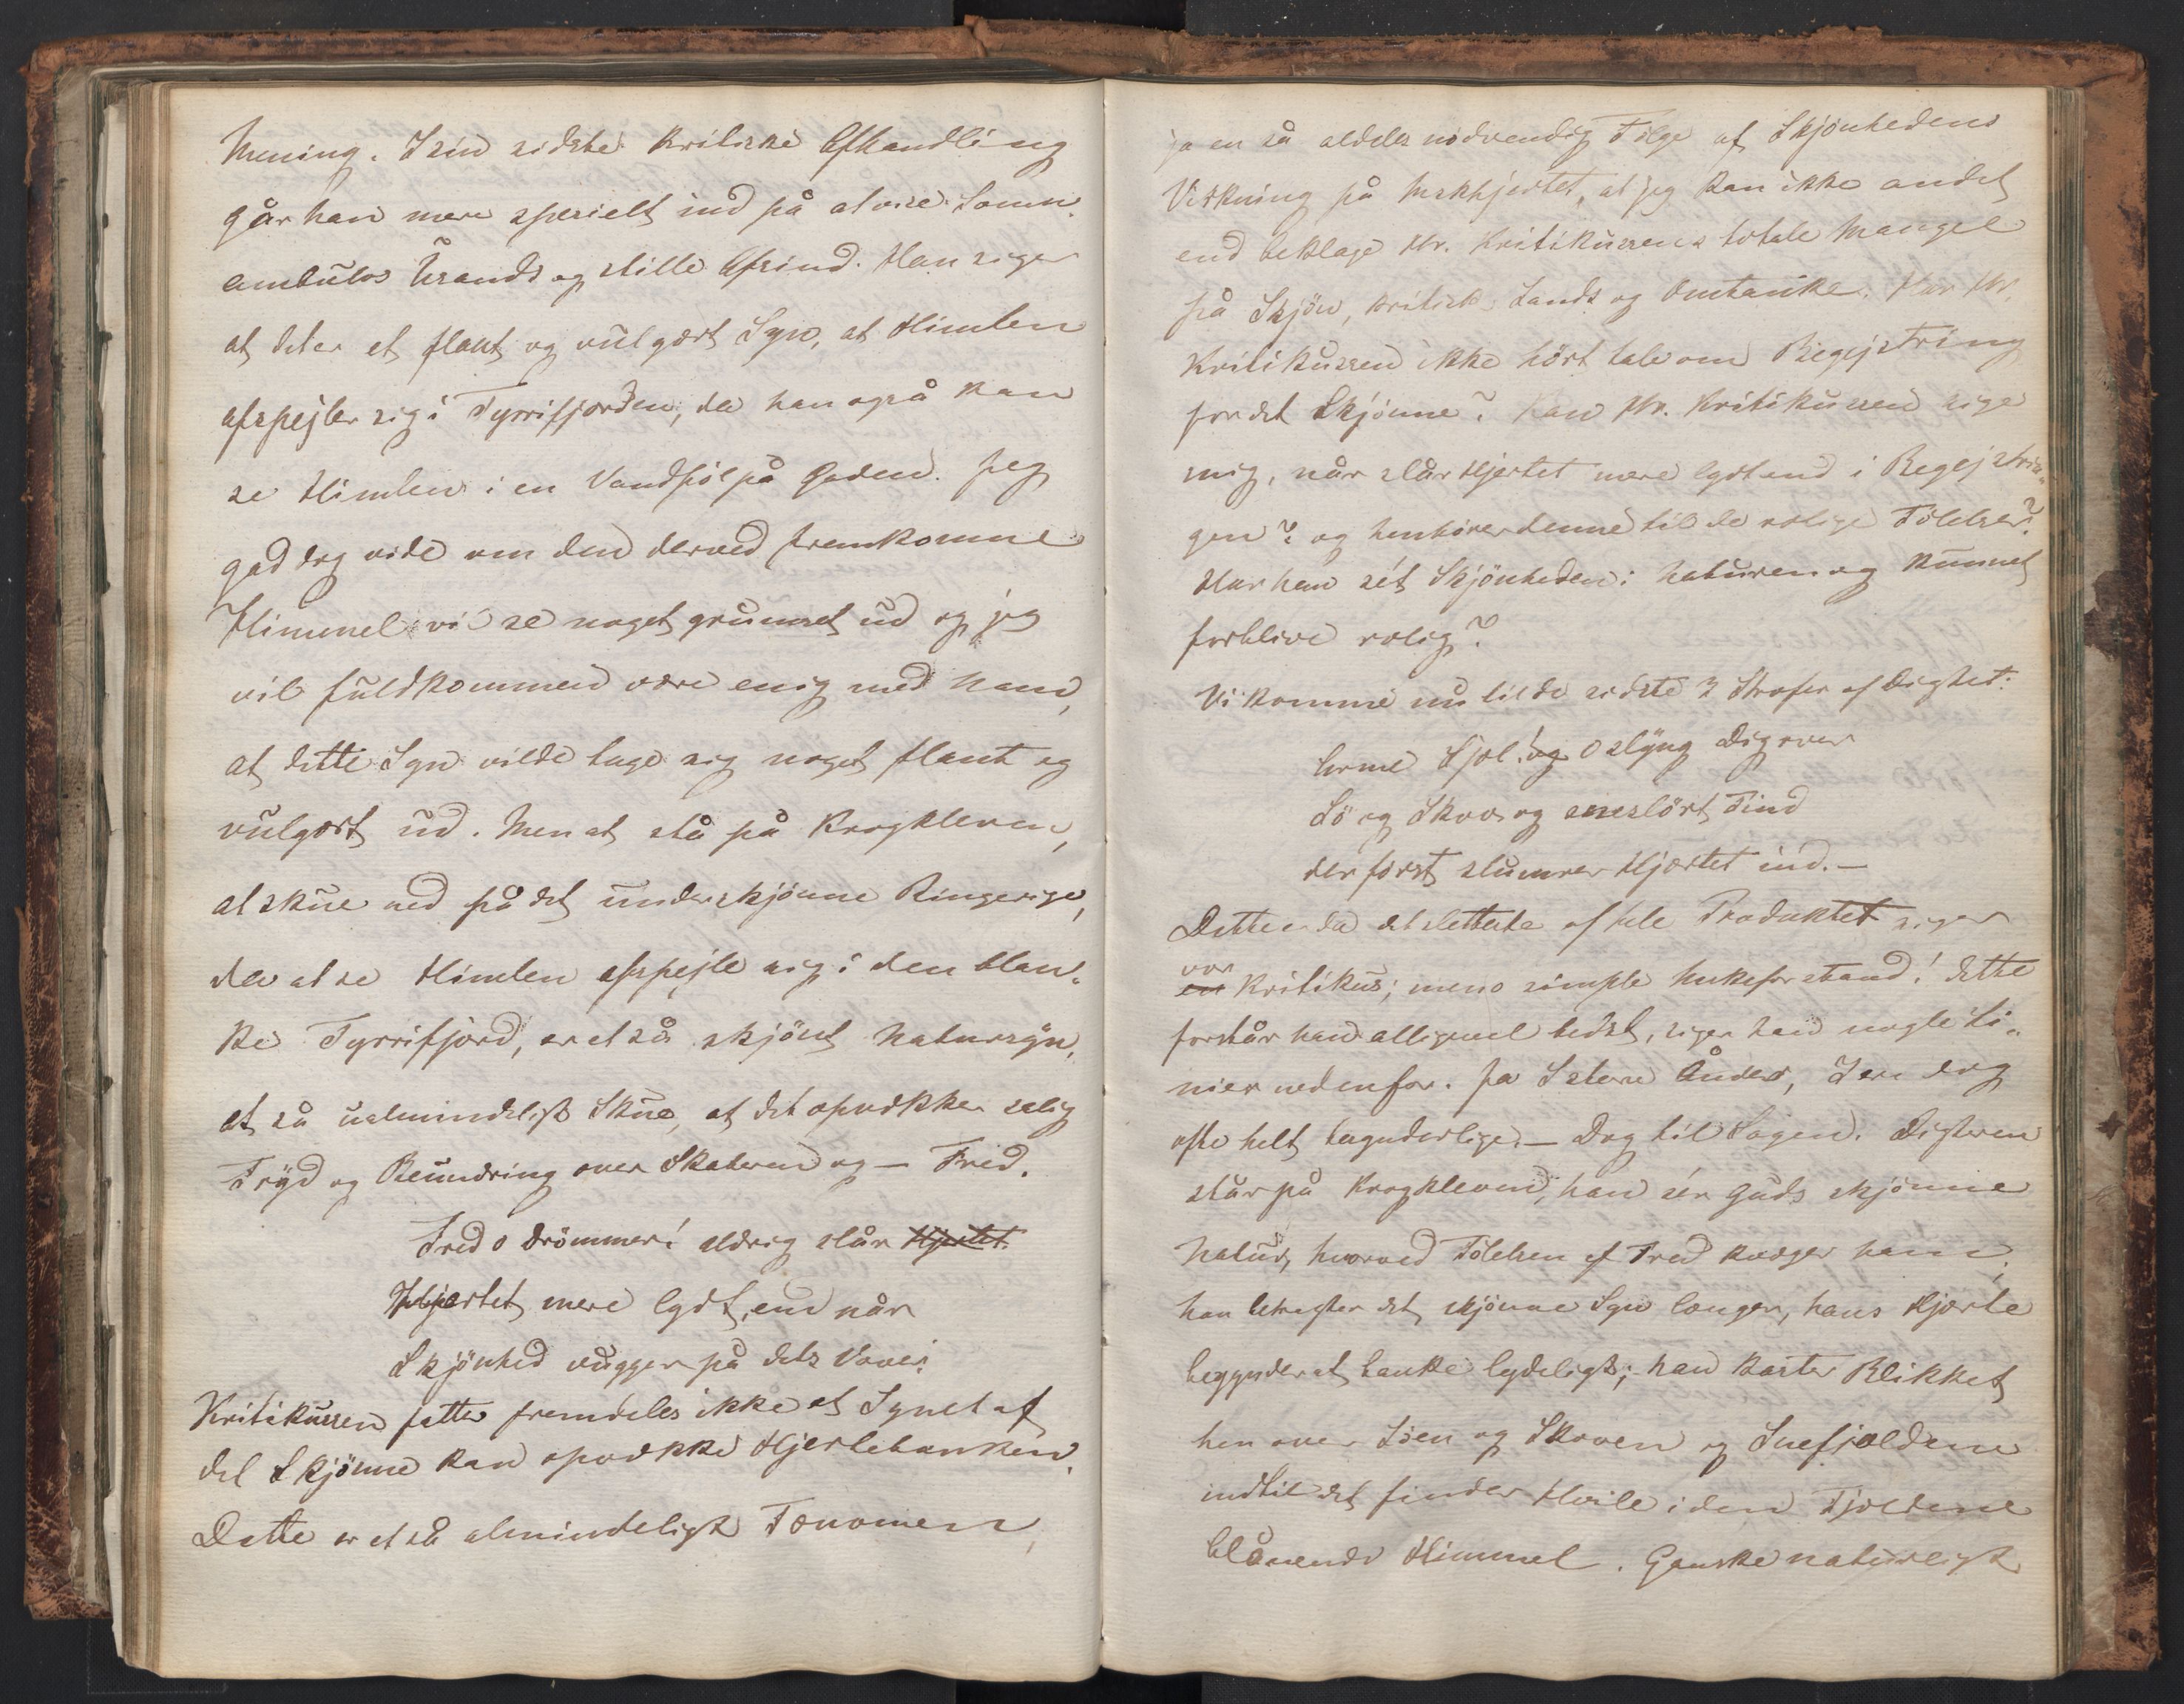 Mening. I sin sidste kritiske Afhandling
går han mere specielt ind på at vise Somn¬
ambulos Usands og stille Afsind. Han siger
at det er et flaut og vulgært Syn, at Himlen
afspejler sig i Tyrrifjorden, da han også kan
se Himlen i en Vandpöl på Gaden. Jeg
gad dog vide om den derved fremkomne
Himmel vil se noget grumset ud og jeg
vil fuldkommen være enig med ham,
at dette Syn vilde tage sig noget flaut og
vulgært ud. Men at stå på Krogkleven,
at skue ned på det underskjönne Ringerige,
der at se Himlen afspejle sig i den blan¬
ke Tyrrifjord, er et så skjönt Natursyn,
et så ualmindeligt Skue, at det opvækker salig
Fryd og Beundring over Skaberen og — Fred.
Fred o Drömmer! aldrig slår Hjertet
Hjertet mere lydt, end når
Skjönhed vugger på dets Vover.
Kritikussen fatter fremdeles ikke at Synet af
det Skjönne kan opvække Hjertebanken.
Dette er et så almindeligt Fænomen,
ja en så aldeles nödvendig Fölge af Skjönhedens
Virkning på Mskhjertet, at jeg kan ikke andet
end beklage Hr. Kritikussens totale Mangel
på Skjön, kritisk Sands og Omtanke. Har Hr.
Kritikussen ikke hört tale om Begejstring
for det Skjönne? Kan Hr. Kritikussen sige
mig, når slår Hjertet mere lydt end i Begejstrin¬
gen? og henhörer denne til de rolige Fölelser?
Har han sét Skjönheden i Naturen og kunnet
forblive rolig?
Vi komme nu til de sidste 3 Strofer af Digtet:
Arme Sjæl! og O slyng Dig over
Sö og Skov og sneslört Tind
der först slumrer Hjertet ind. —
Dette er da det sletteste af hele Produktet siger
vor
en Kritikus; men o simple Mskeforstand! dette
forstår han alligevel bedst, siger han nogle Li¬
nier nedenfor. Ja I store Ånder, I ere dog
ofte helt besynderlige. — Dog til Sagen. Digteren
står på Krogkleven, han sér Guds skjönne
Natur, hvorved Fölelsen af Fred kvæger ham,
han betragter det skjönne Syn længer, hans Hjerte
begynder at banke lydeligt; han kaster Blikket
hen over Söen og Skoven og Snefjeldene
indtil det finder Hvile i den Fjeldene
blånende Himmel. Ganske naturligt